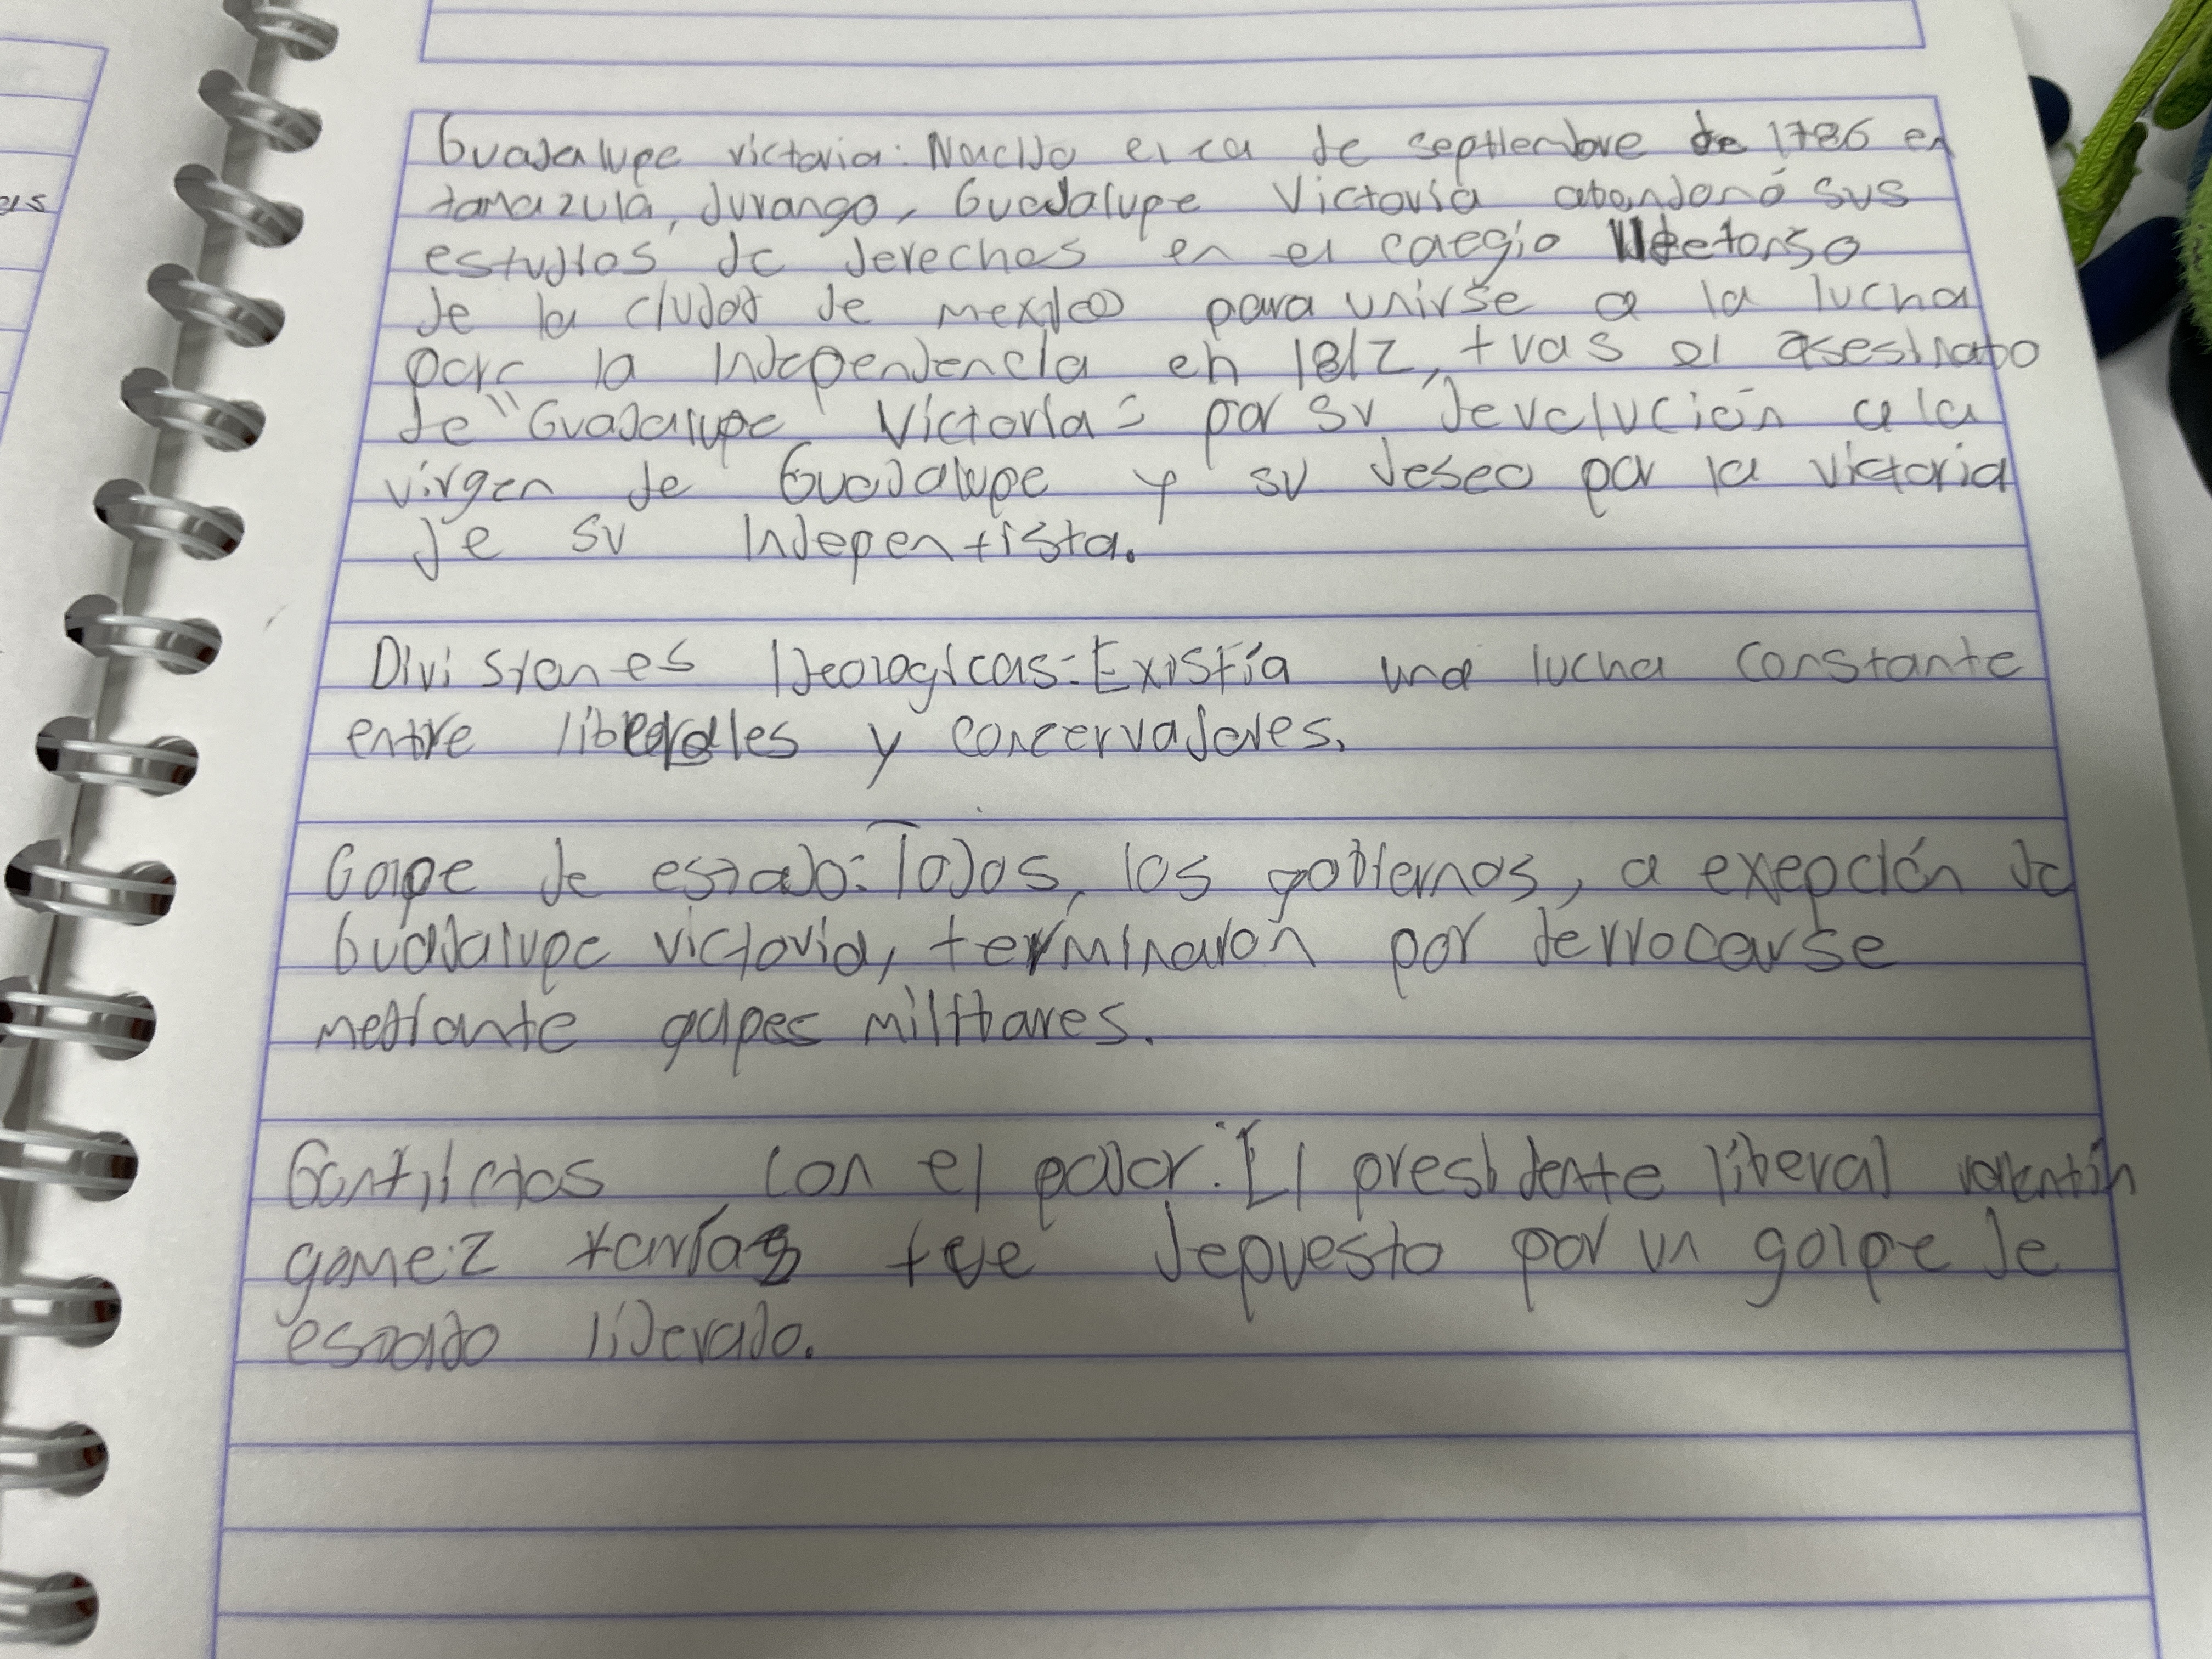 Guadalupe victoria: Nacido el de septiembre de 1786 en
tamazula, durango, Guadalupe Victoria abandonó sus
estudios de derechos en el
de la ciudad de mexico para unirse a la lucha
para la independencia en 1812, tras el asesinato
de "Guadalupe Victoria" por su devolución a la
virgen de Guadalupe y su deseo por la victoria
de su Indepentista.
Divisiones Ideologicas: Existía una lucha constante
entre liberales y concervadores.
Golpe de estado: Todos, los gobiernos, a exepción de
Guadalupe victoria, terminaron por derrocarse
mediante golpes militares.
con el poder: El presidente liberal valentín
gomez farías fue depuesto por un golpe de
estado liderado.